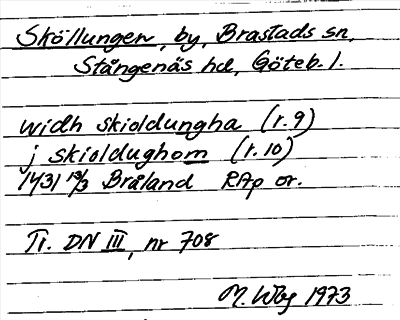 Sköllungen, by, Brastads sn,
Stångenäs hd, Göteb. l.
widh skioldungha (r. 9)
j skioldughom (r. 10)
1431 19/3 Bråland RAp or.
Tr. DN III, nr 708
M. Wbg 1973